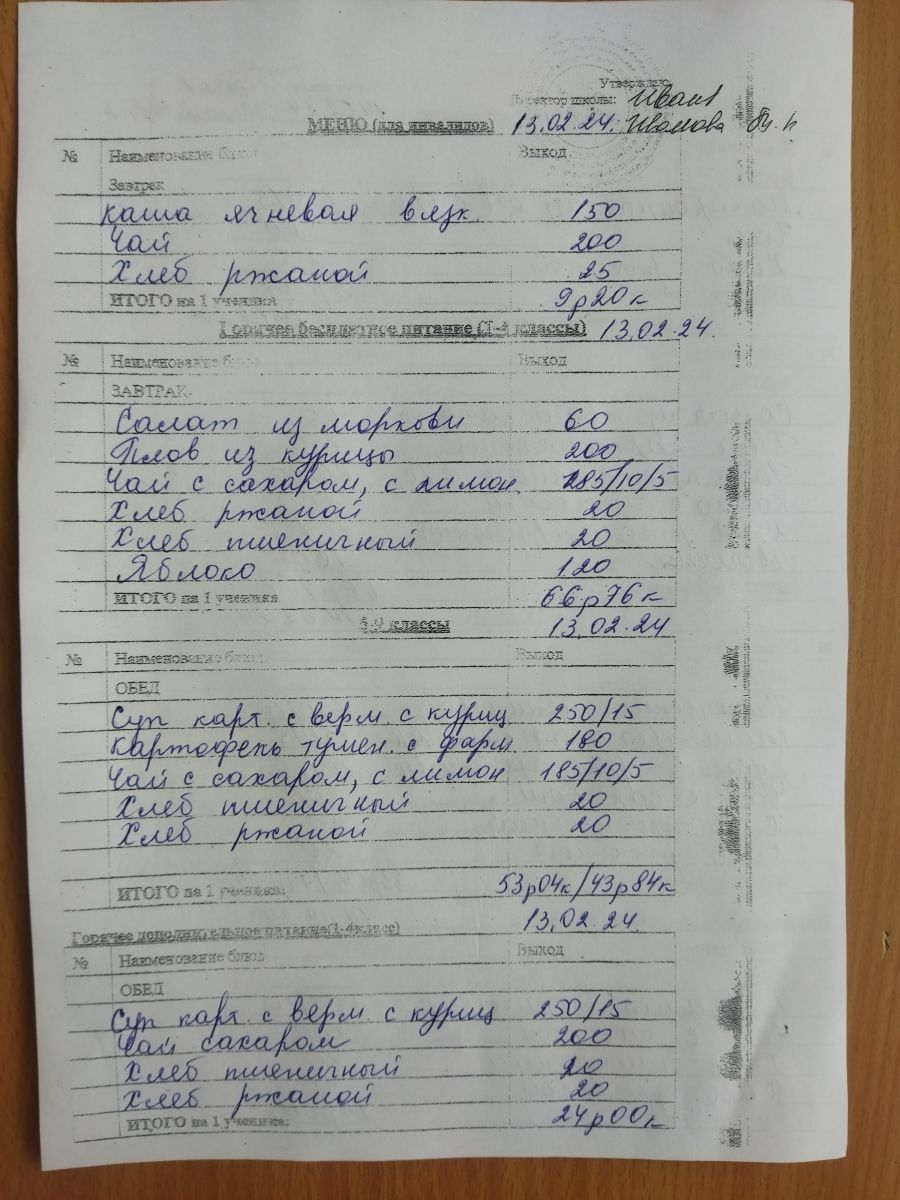 Утверждаю
Директор школы:
МЕНЮ (для инвалидов) 13.02.24. Иванова
№ Наименование блюд Выход
Завтрак
Каша ячневая вязк. 150
Чай 200
Хлеб ржаной 25
ИТОГО на 1 ученика 9р20к
Горячее бесплатное питание (1-4 классы) 13.02.24.
№ Наименование блюд Выход
ЗАВТРАК
Салат из моркови 60
Плов из курицы 200
Чай с сахаром, с лимон. 185/10/5
Хлеб ржаной 20
Хлеб пшеничный 20
Яблоко 120
ИТОГО на 1 ученика 66р76к
5-9 классы 13.02.24
№ Наименование блюд Выход
ОБЕД
Суп карт. с верм. с куриц 250/15
Картофель тушен. с фарш 180
Чай с сахаром, с лимон 185/10/5
Хлеб пшеничный 20
Хлеб ржаной 20
ИТОГО на 1 ученика 53р04к/43р84к
Горячее дополнительное питание(1-4класс) 13.02.24.
№ Наименование блюд Выход
ОБЕД
Суп карт. с верм. с куриц 250/15
Чай сахаром 200
Хлеб пшеничный 20
Хлеб ржаной 20
ИТОГО на 1 ученика: 24р00к